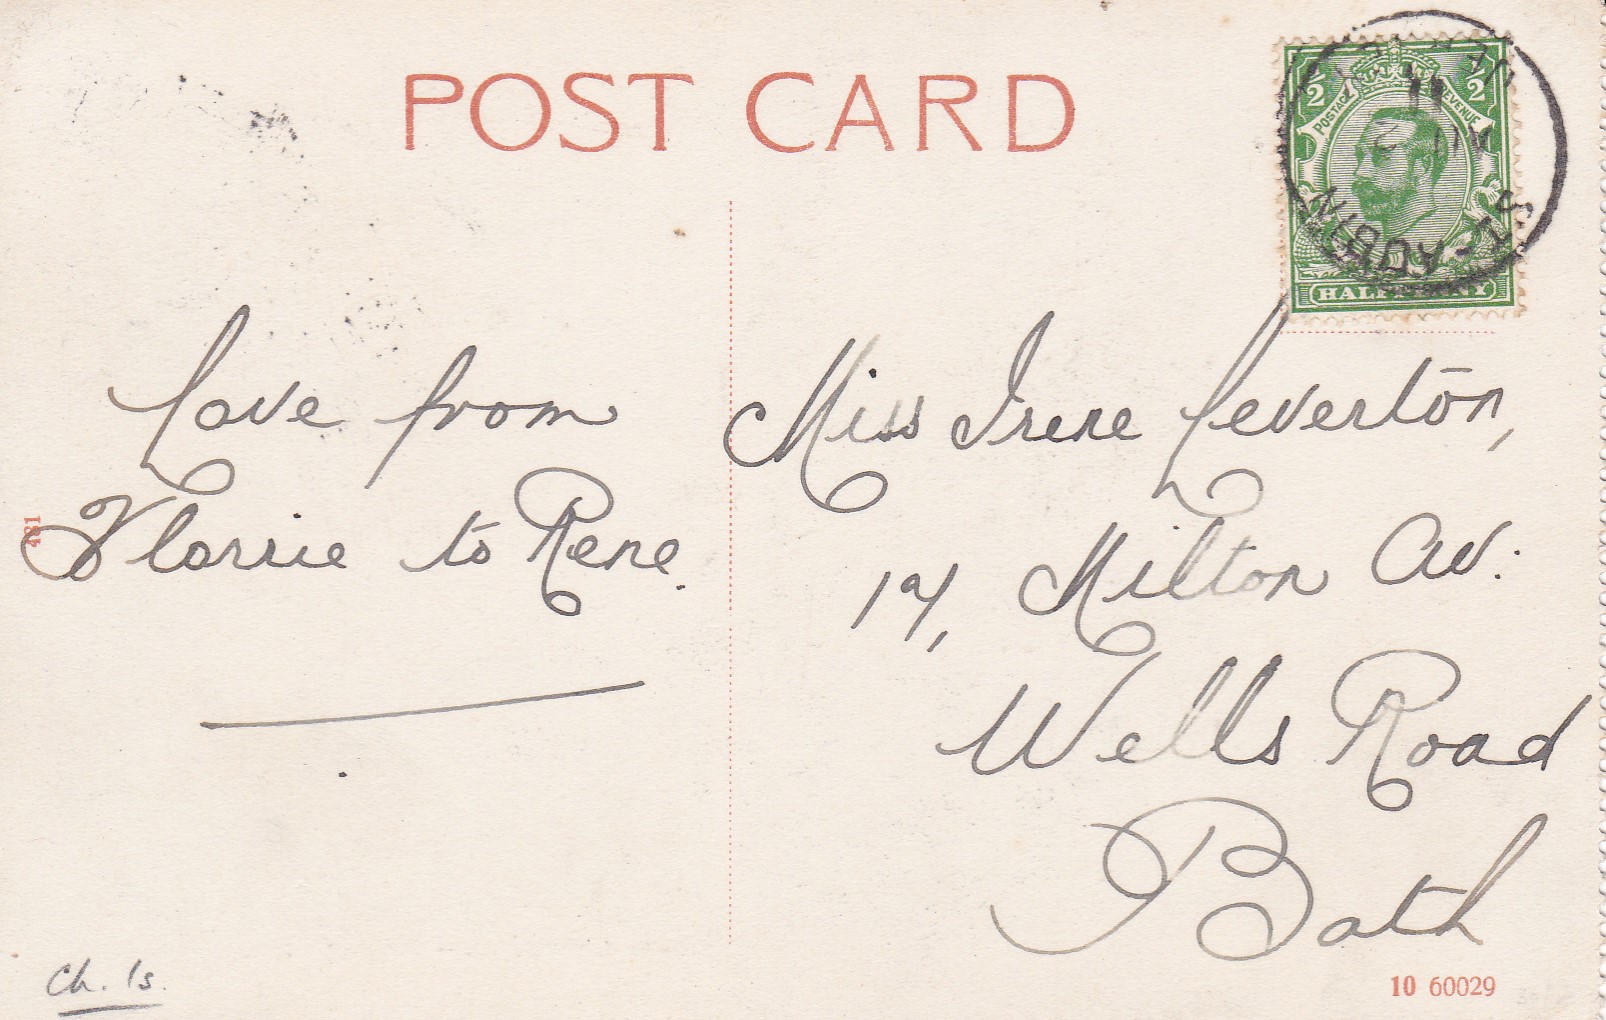 POST CARD
1/2 1/2
POSTAGE REVENUE
HALFPENNY
ST. AUBIN
JERSEY
Love from
Florrie to Rene.
Miss Irene Leverton,
17, Milton Av:
Wells Road
Bath
481
Ch. Is.
10 60029